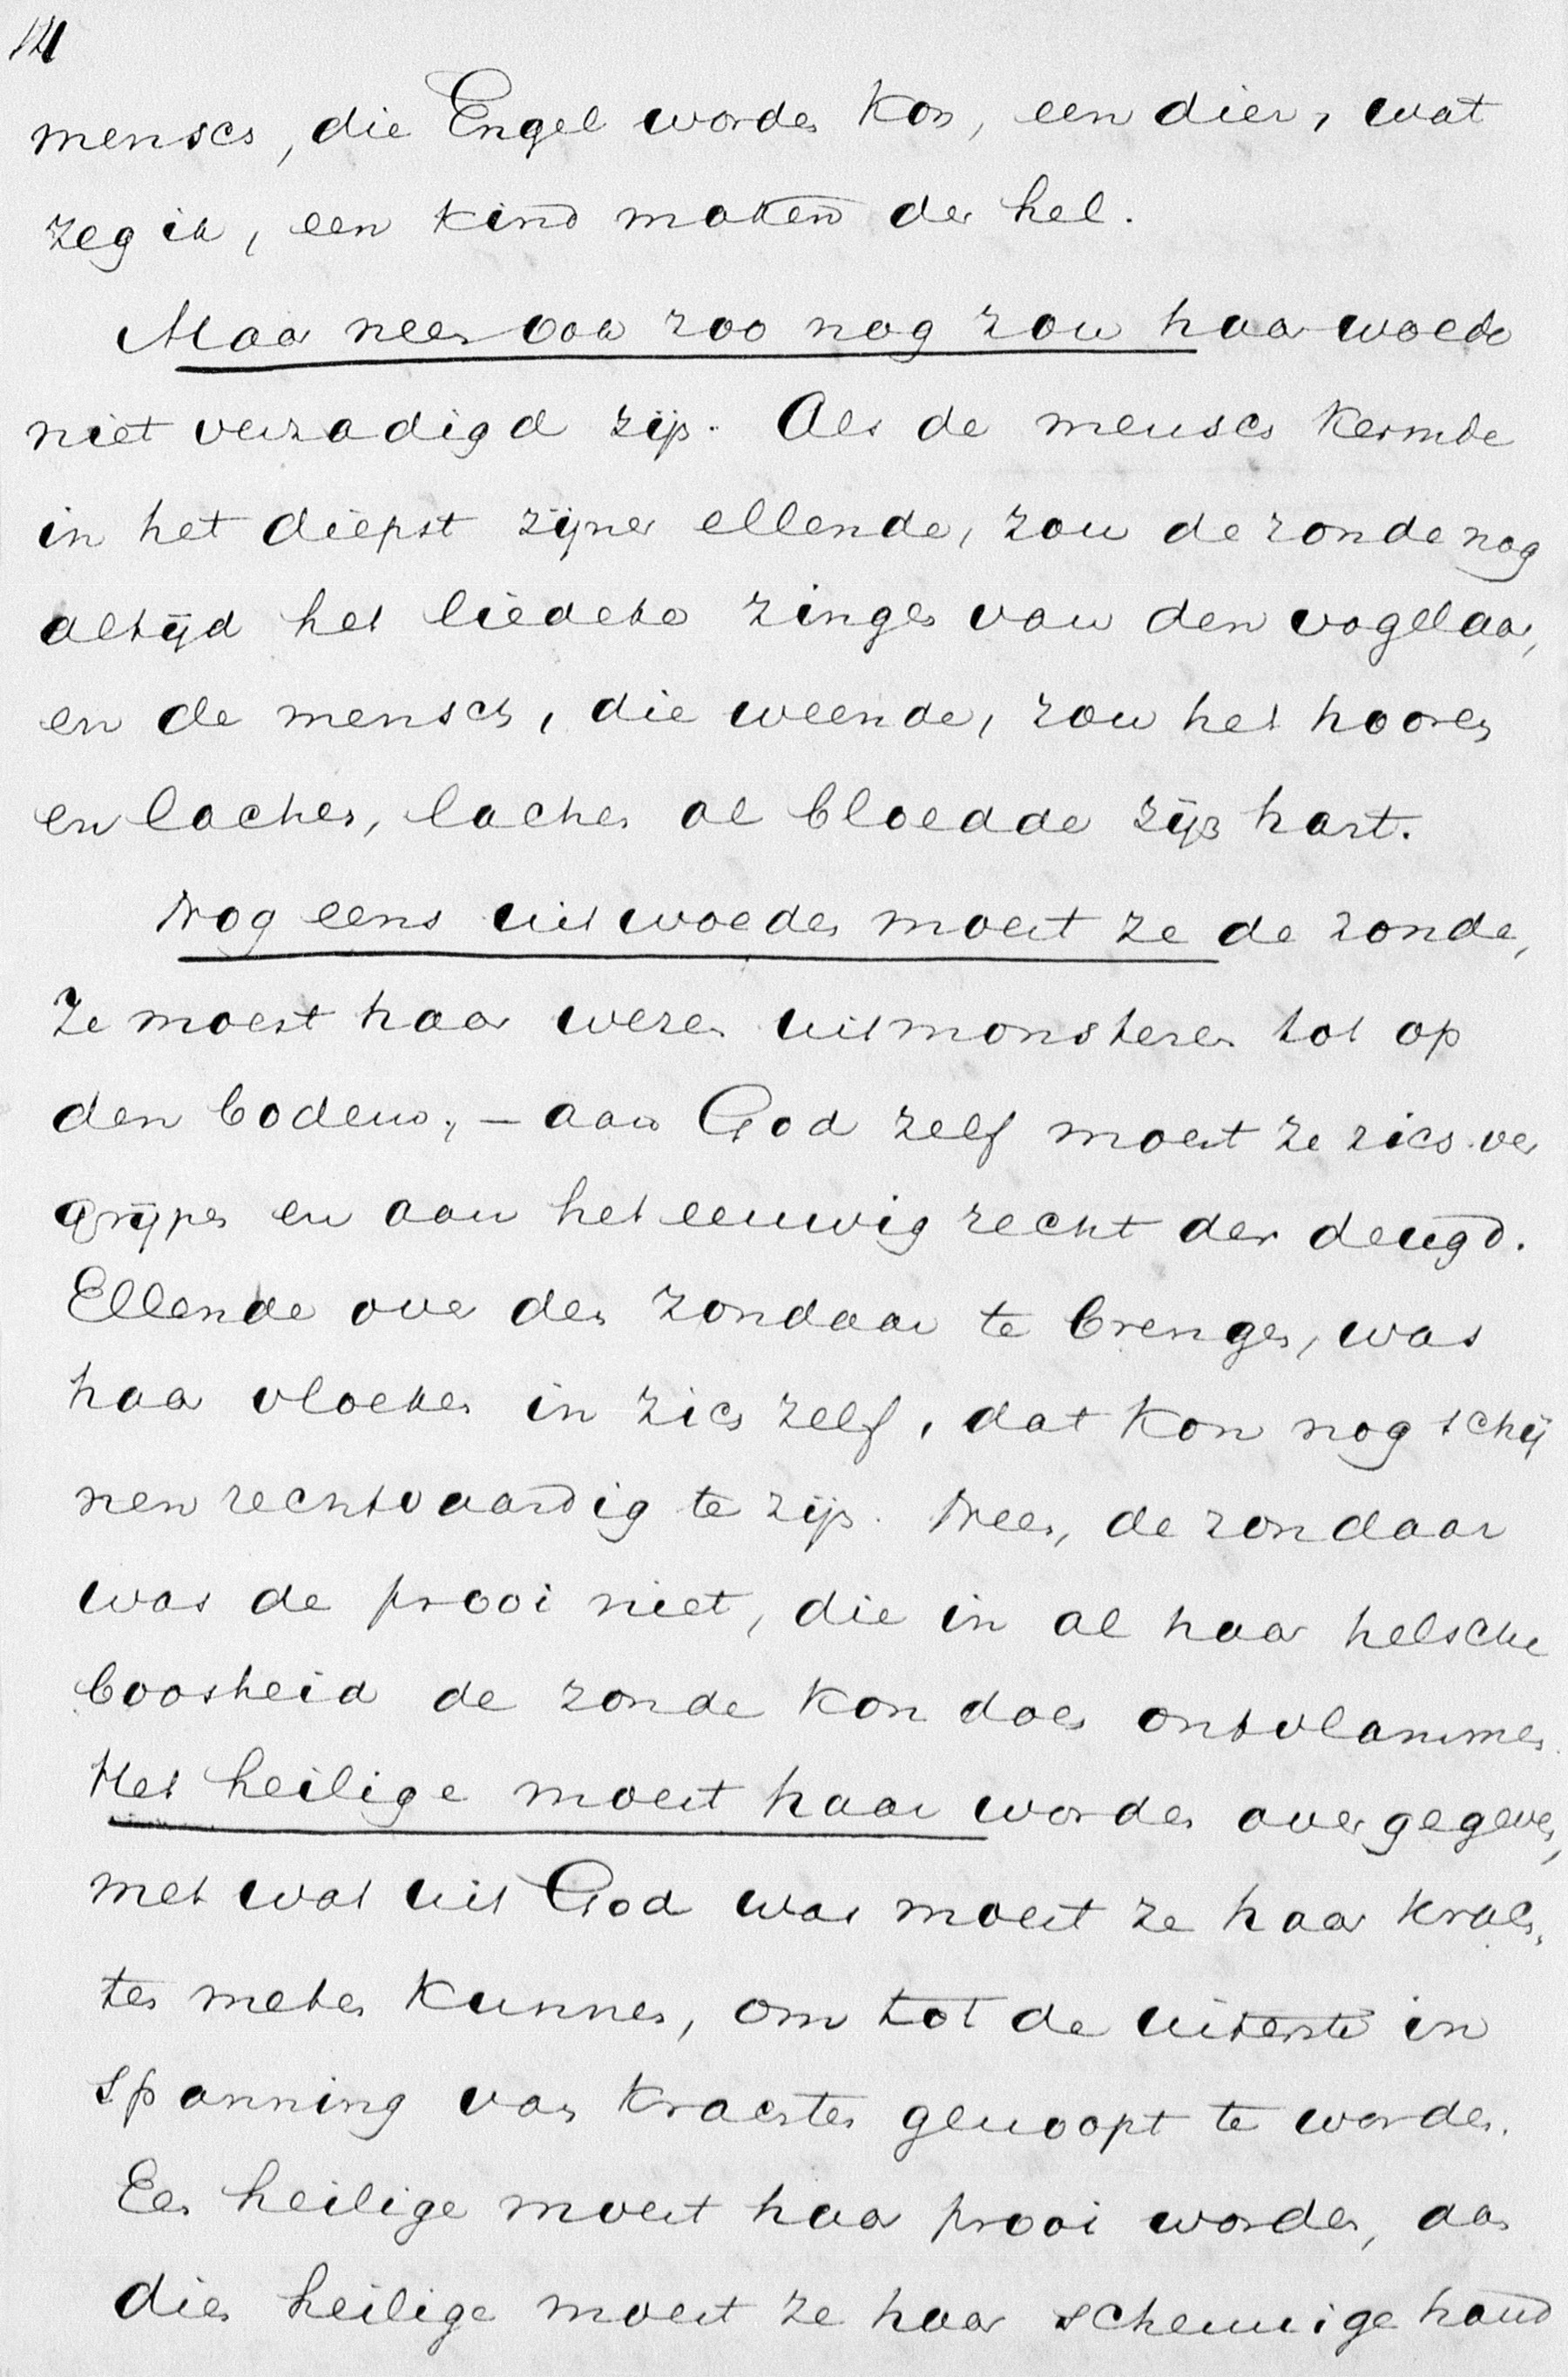 14
mensch, die Engel worden kon, een dier, wat
zeg ik, een kind maken der hel.
Maar neen ook zoo nog zou haar woede
niet verzadigd zijn. Als de mensch kermde
in het diepst zijner ellende, zou de zonde nog
altijd het liedeke zingen van den vogelaar,
en de mensch, die weende, zou het hooren
en lachen, lachen al bloedde zijn hart.
Nog eens uitwoeden moest ze de zonde,
Ze moest haar wezen uitmonsteren tot op
den bodem, – aan God zelf moest ze zich ver
grijpen en aan het eeuwig recht der deugd.
Ellende over den zondaar te brengen, was
haar vloeken in zich zelf, dat kon nog schij
nen rechtvaardig te zijn. Neen, de zondaar
was de prooi niet, die in al haar helsche
boosheid de zonde kon doen ontvlammen.
Het heilige moest haar worden overgegeven,
met wat uit God was moest ze haar krach,
ten meten kunnen, om tot de uiterste in
spanning van krachten genoopt te worden.
Een heilige moest haar prooi worden, aan
dien heilige moest ze haar schennige hand